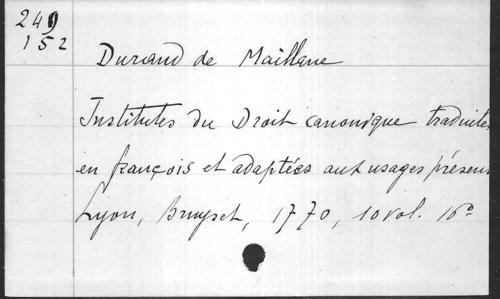 249
152
Durand de Maillane
Institutes du Droit canonique traduites
en françois et adaptées aux usages présens
Lyon, Bruyset, 1770, 10 vol. 16º